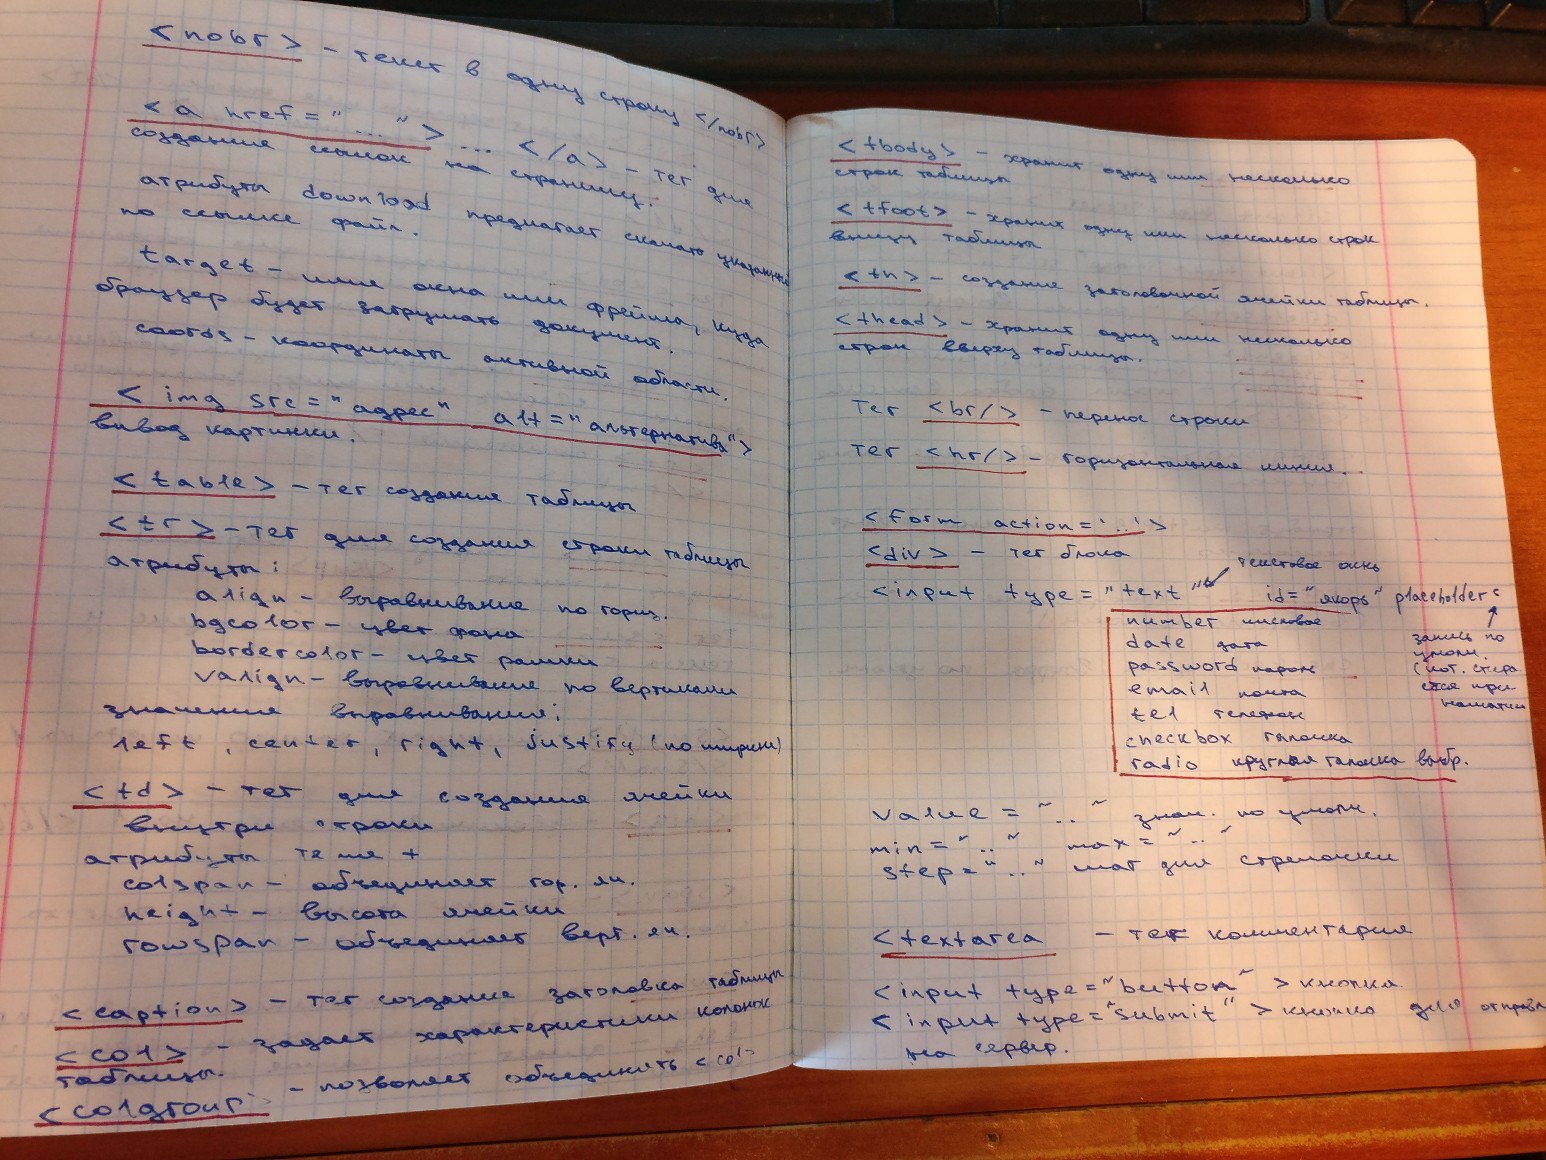 <nobr> – текст в одну строку </nobr>
<a href="..."> ... </a> – тег для
создание ссылок на страницу.
атрибуты download предлагает скачать указанный
по ссылке файл.
target – имя окна или фрейма, куда
браузер будет загружать документ.
coords – координаты активной области.
<img src="адрес" alt="альтернатива">
вывод картинки.
<table> – тег создания таблицы
<tr> – тег для создания строки таблицы
атрибуты:
align – выравнивание по гориз.
bgcolor – цвет фона
bordercolor – цвет рамки
valign – выравнивание по вертикали
значения выравнивания:
left, center, right, justify (по ширине)
<td> – тег для создания ячейки
внутри строки
атрибуты те же +
colspan – объединяет гор. яч.
height – высота ячейки
rowspan – объединяет верт. яч.
<caption> – тег создание заголовка таблицы
<col> – задает характеристики колонок
таблицы.
<colgroup> – позволяет объединить <col>
<tbody> – хранит одну или несколько
строк таблицы
<tfoot> – хранит одну или несколько строк
внизу таблицы
<th> – создание заголовочной ячейки таблицы.
<thead> – хранит одну или несколько
строк вверху таблицы.
Тег <br/> – перенос строки
Тег <hr/> – горизонтальная линия.
<form action='..'>
<div> – тег блока
текстовое окно
<input type="text" id="якорь" placeholder=
number числовое
date дата
password пароль
email почта
tel телефон
checkbox галочка
radio круглая галочка выбр.
запись по
умолч.
(кот. стира
ется при
нажатии
value = ".." знач. по умолч.
min=".." max=".."
step=".." шаг для стрелочки
<textarea – тег комментария
<input type="button"> кнопка
<input type="submit"> кнопка для отправл
на сервер.